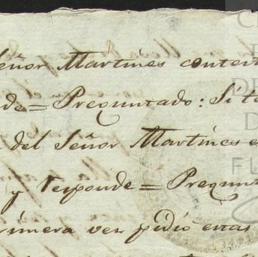 Señor Martines contest
de = Preguntado: Si te
del Señor Martines e
y Responde = Pregun
primera ver pidio erras